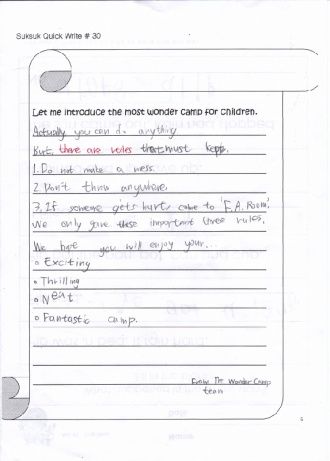 Suksuk Quick Write # 30
Let me introduce the most wonder camp for children.
Actually you can do anything
But, there are rules that must kept.
1. Do not make a mess.
2. Don't throw anywhere.
3. If someone gets hurt, come to 'F.A. Room'.
We only gave these important three rules.
We hope you will enjoy your...
Exciting
Thrilling
Neat
Fantastic camp.
The Wonder Camp
team